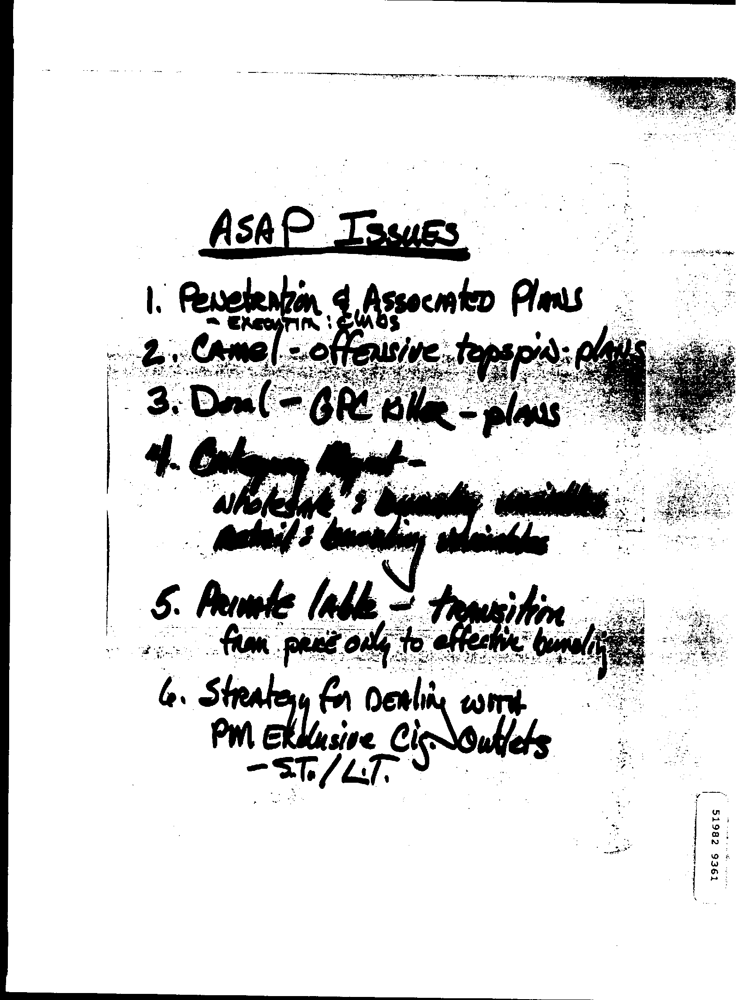 ASAP ISSUES
1. Penetration & Associated Plans
- Execution : Clubs
2. Camel - offensive topspin - plans
3. Doral - GPC killer - plans
4. Category Mgmt -
Wholesale : bundling variables
Retail : bundling variables
5. Private lable - transition
from price only to effective bundlig
6. Strategy for Dealing with
PM Exclusive Cig. Outlets
- S.T. / L.T.
51982 9361